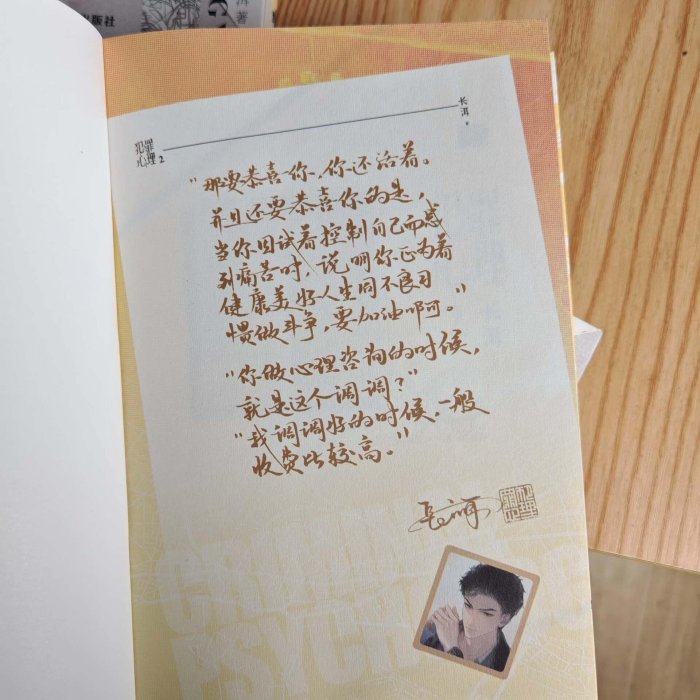 版社
洱著
长洱。
犯罪
心理2
“那要恭喜你，你还活着。
并且还要恭喜你的是，
当你因试着控制自己而感
到痛苦时，说明你正为着
健康美好人生同不良习
惯做斗争，要加油啊。”
“你做心理咨询的时候，
就是这个调调？”
“我调调好的时候，一般
收费比较高。”
长洱
犯罪心理
CRIMINAL
PSYCH